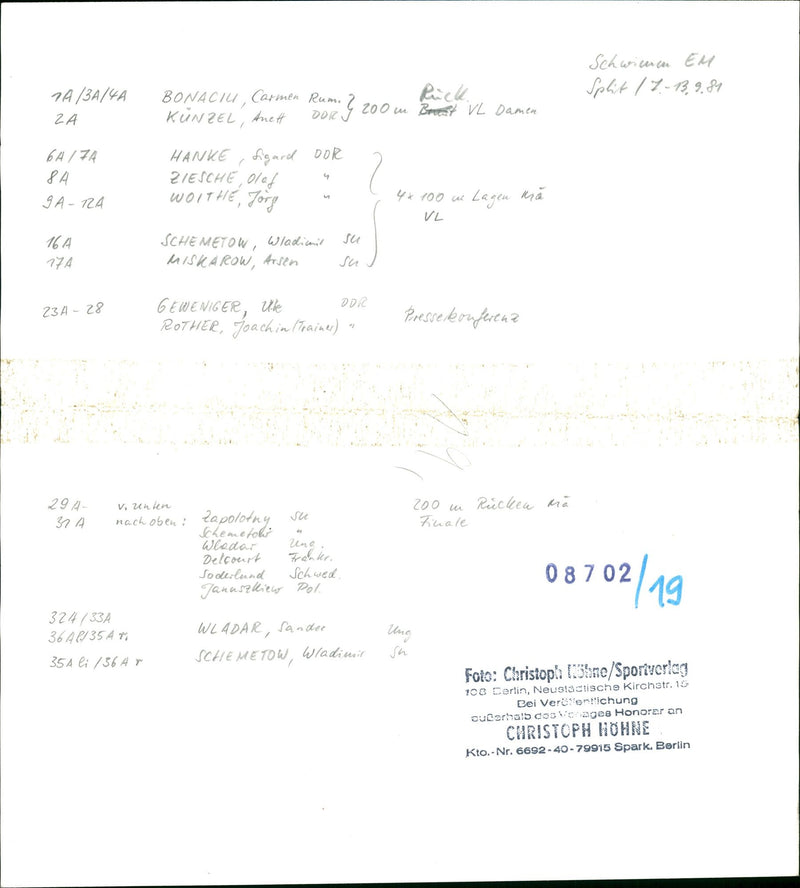 Schwimm EM
Split / 7.-13.9.81
1A/3A/4A BONACIU, Carmen Rum. } 200 m Rück. VL Damen
2A KÜNZEL, Anett DDR
6A/7A HANKE, Sigurd DDR
8A ZIESCHE, Olaf "
9A-12A WOITHE, Jörg " 4x100 m Lagen Mä
VL
16A SCHEMETOW, Wladimir SU
17A MISKAROW, Arsen SU
23A-28 GEWENIGER, Ute DDR
ROTHER, Joachim (Trainer) " Pressekonferenz
29A- v. unten 200 m Rücken Mä
31A nach oben: Zapolotny SU Finale
Schemetow "
Wladar Ung.
Delcourt Frankr.
Soderlund Schwed.
Januszkiew Pol.
08702/19
32A/33A
36Ali/35A r. WLADAR, Sandor Ung
35A li/36A r SCHEMETOW, Wladimir SU
Foto: Christoph Höhne/Sportverlag
108 Berlin, Neustädtische Kirchstr. 15
Bei Veröffentlichung
außerhalb des Verlages Honorar an
CHRISTOPH HÖHNE
Kto.-Nr. 6692-40-79915 Spark. Berlin